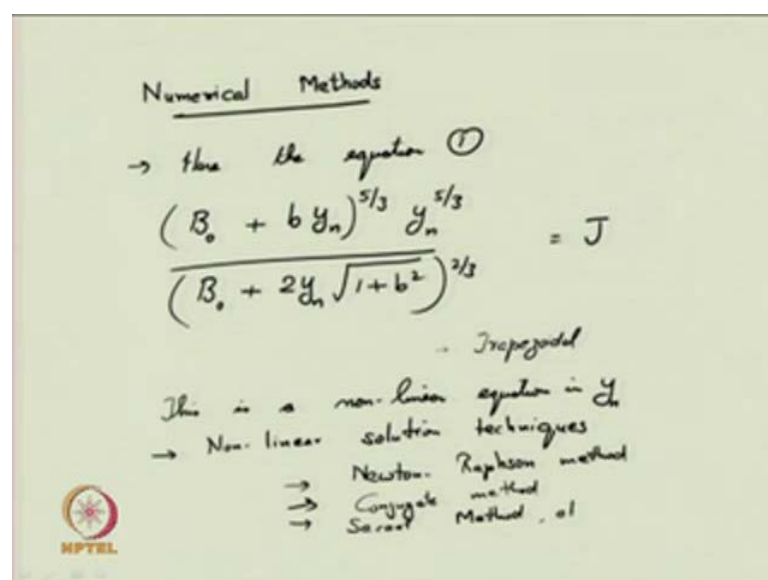 Numerical Methods
→ Here the equation ①
(B₀ + b yₙ)^5/3 yₙ^5/3
= J
(B₀ + 2yₙ √1+b²)^2/3
- Trapezoidal
This is a non-linear equation in yₙ
→ Non-linear solution techniques
→ Newton-Raphson method
→ Conjugate method
→ Secant Method,
NPTEL